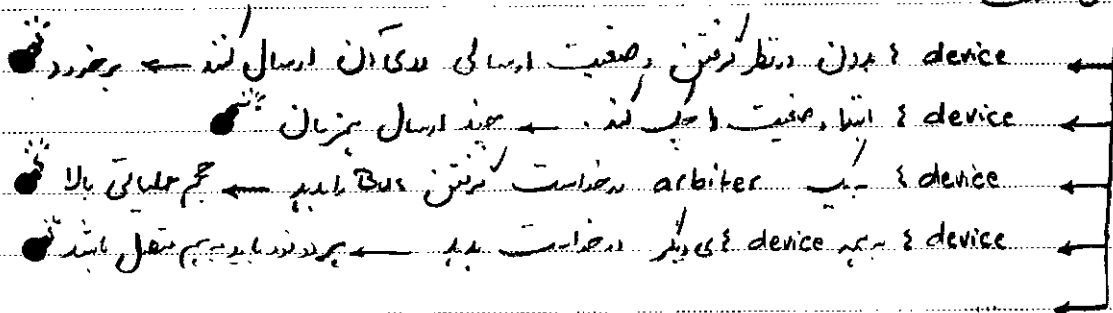 device ها بدون در نظر گرفتن وضعیت ارسالی روی آن ارسال کنند ← برخورد
device ها ابتدا وضعیت را چک کند. ← چند ارسال همزمان
device ها به یک arbiter درخواست گرفتن Bus را بدهد ← حجم عملیاتی بالا
device ها به همه device های دیگر درخواست بدهد ← هر دو نود باید به هم متصل باشند